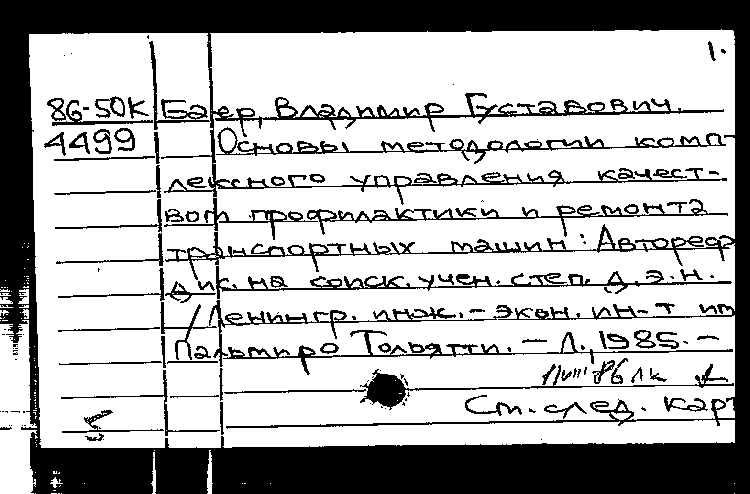 1.
86-50К Баер, Владимир Густавович.
4499 Основы методологии комп-
лексного управления качест-
вом профилактики и ремонта
транспортных машин: Автореф
Дис. на соиск. учен. степ. д. э. н.
/ Ленингр. инж.- экон. ин-т им
Пальмиро Тольятти. — Л., 1985. —
86 лк
См. след. карт
5